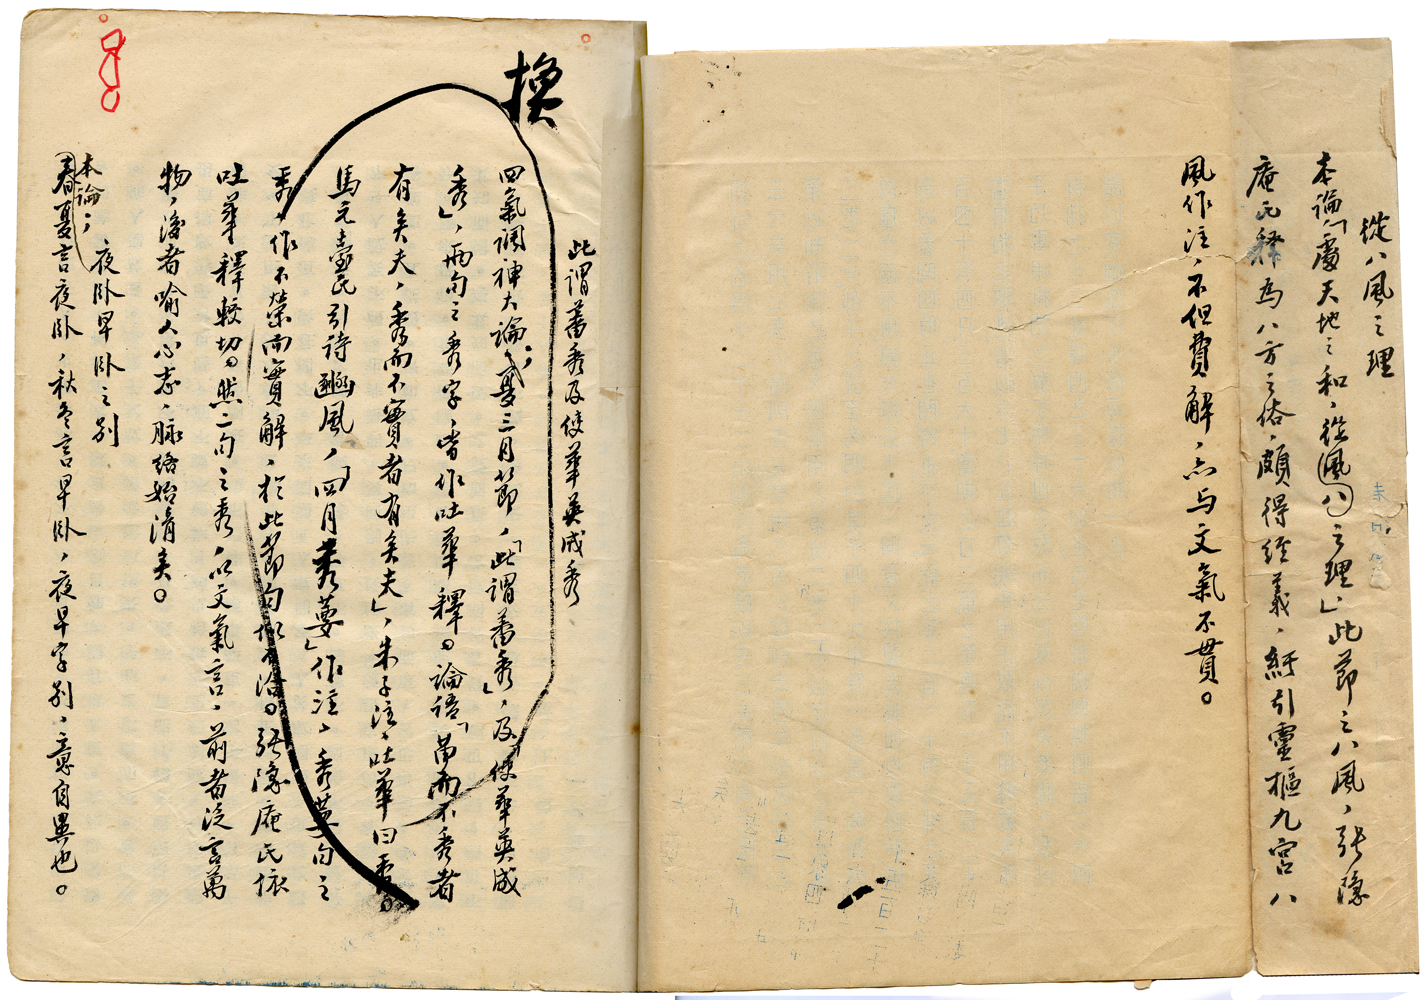 從八風之理
本論「處天地之和，從風八之理」此節之八風，張隱
庵氏釋為八方之俗，頗得經義，紆引靈樞九宮八
風作注，不但費解，亦与文氣不貫。
換
此謂蕃秀及使華英成秀
四氣調神大論；夏三月節，「此謂蕃秀」，及「使華英成
秀」，兩句之秀字，皆作吐華釋。論語「苗而不秀者
有矣夫，秀而不實者有矣夫」，朱子注，吐華曰秀。
馬元臺氏引詩豳風，「四月秀葽」作注，秀葽句之
秀，作不榮而實解，於此節句似不洽。張隱庵氏依
吐華釋較切。然二句之秀，以文氣言，前者泛言萬
物，後者喻人心志，脉絡始清矣。
夜卧早卧之別
本論；
春夏言夜卧，秋冬言早卧，夜早字別，意自異也。